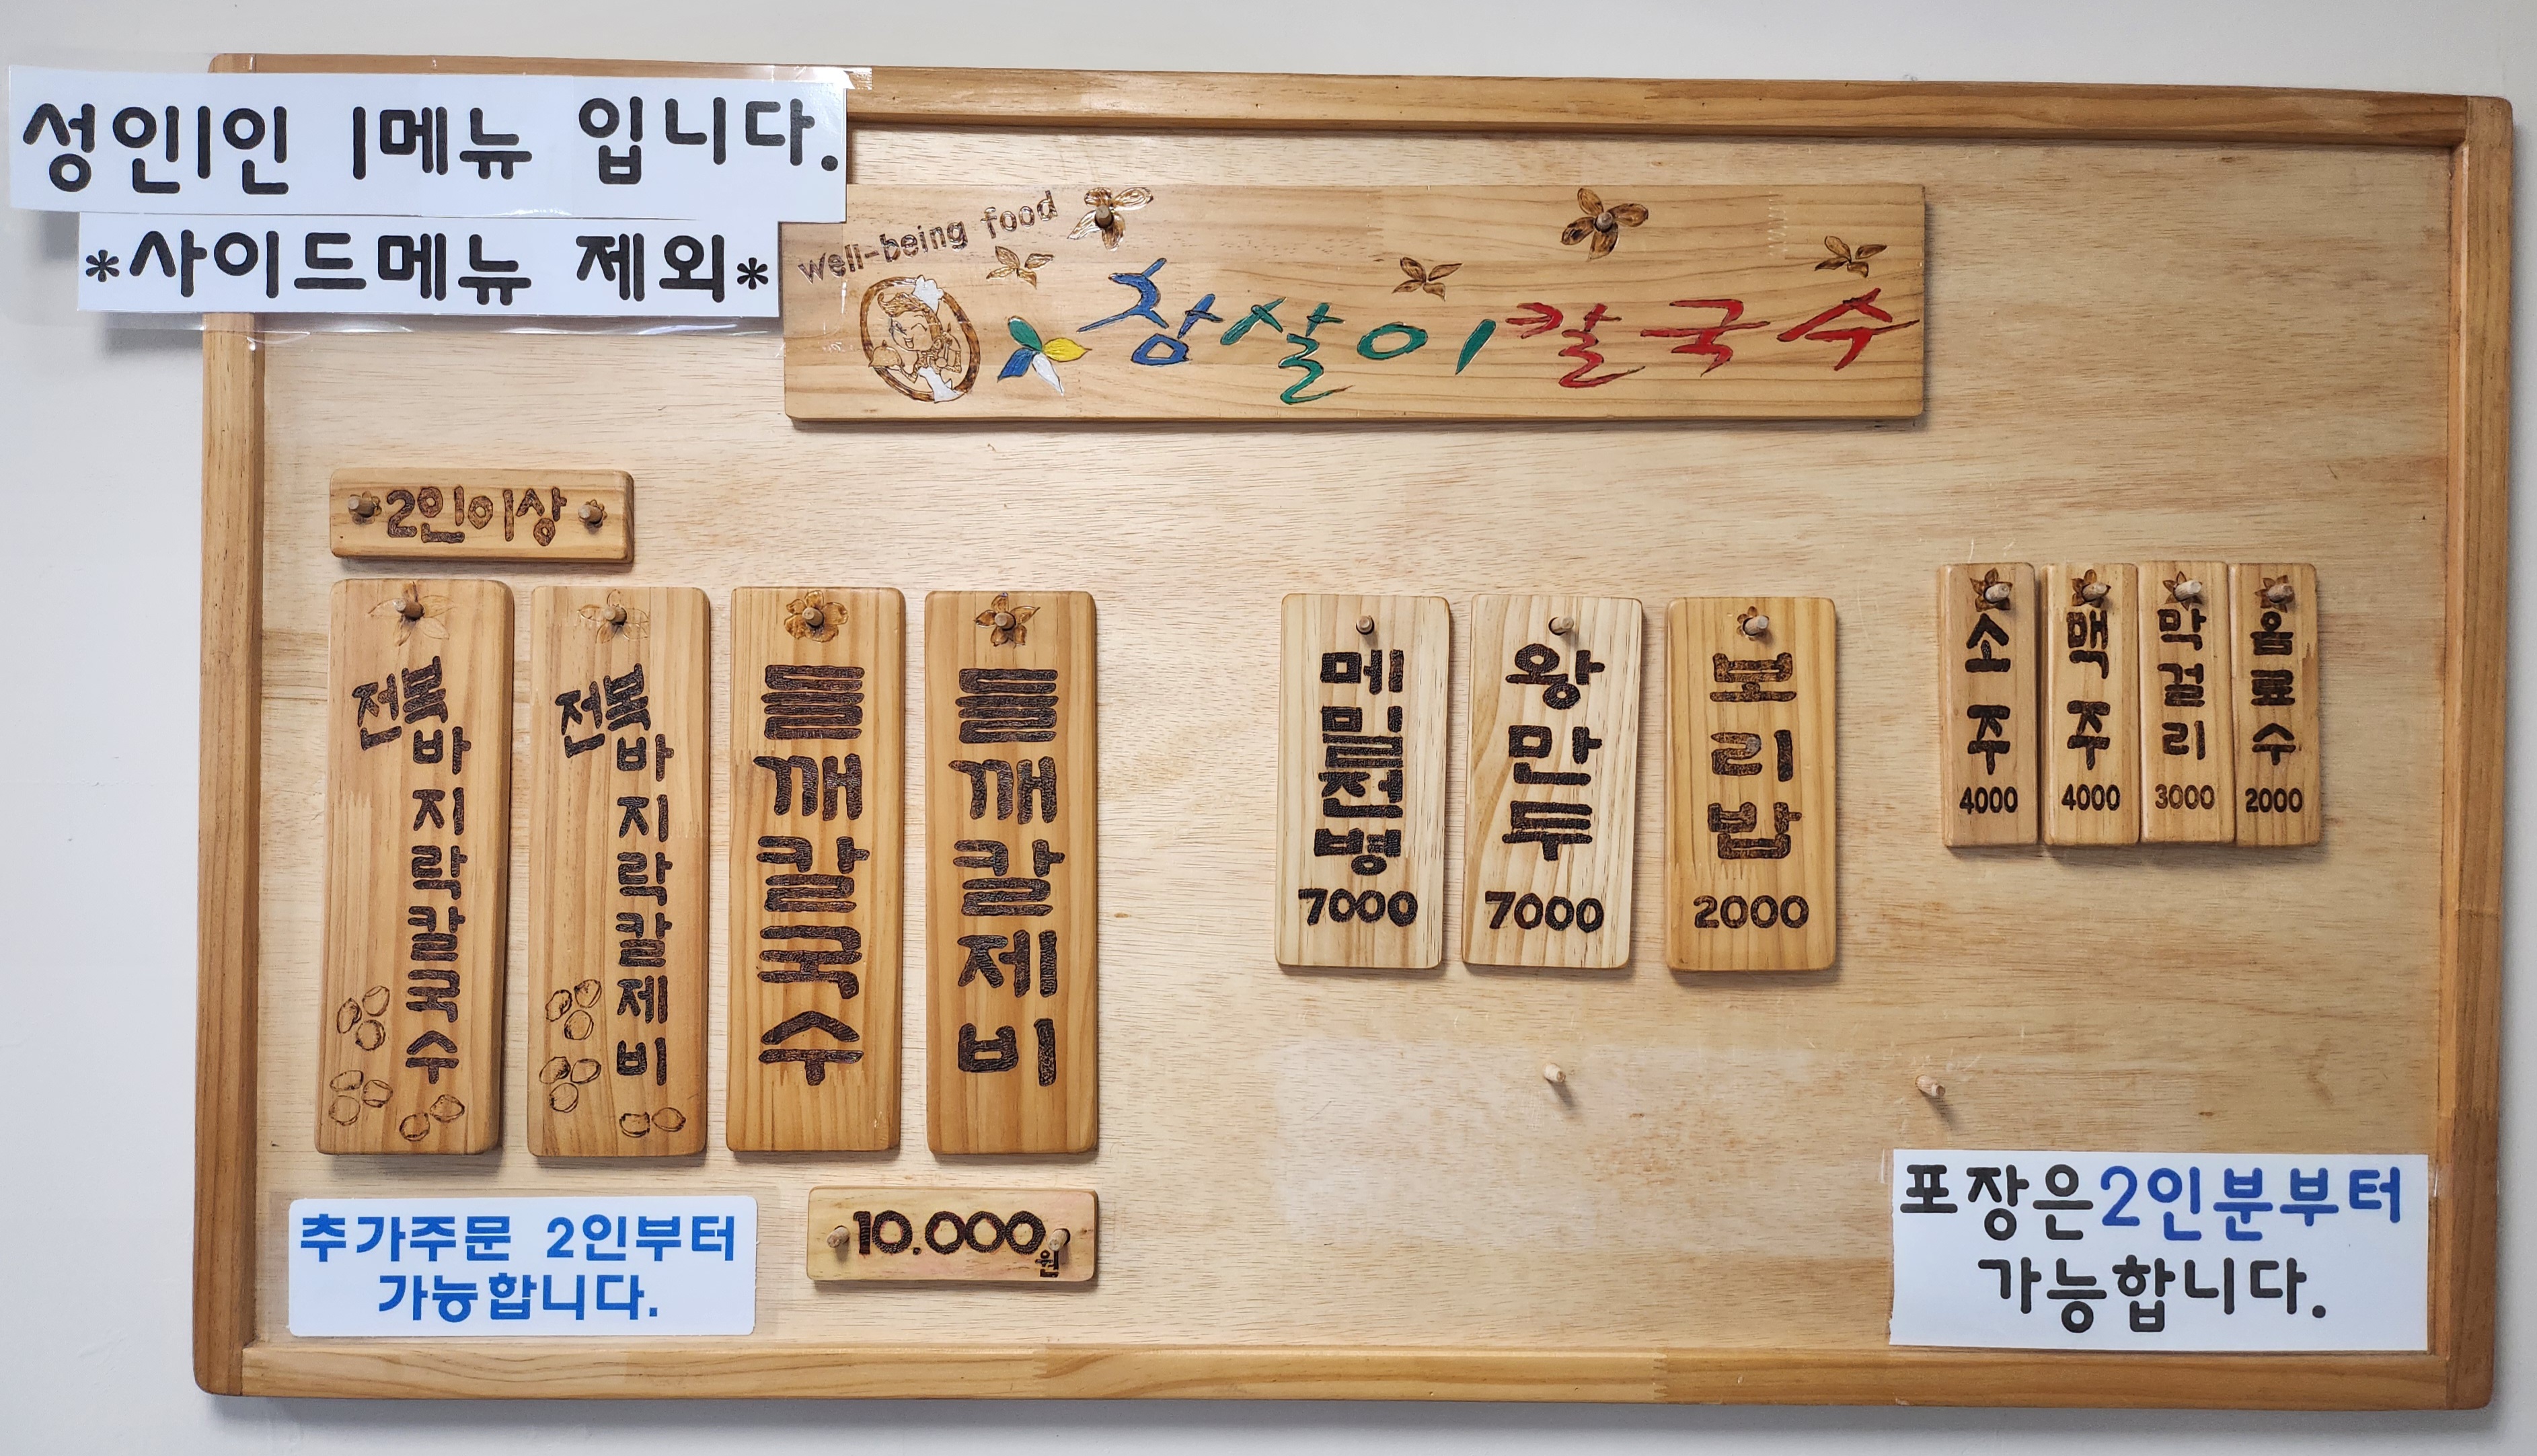 성인1인 1메뉴 입니다.
*사이드메뉴 제외*
well-being food
참살이칼국수
2인이상
전복바지락칼국수
전복바지락칼제비
들깨칼국수
들깨칼제비
10.000원
추가주문 2인부터
가능합니다.
메밀전병
7000
왕만두
7000
보리밥
2000
소주
4000
맥주
4000
막걸리
3000
음료수
2000
포장은2인분부터
가능합니다.